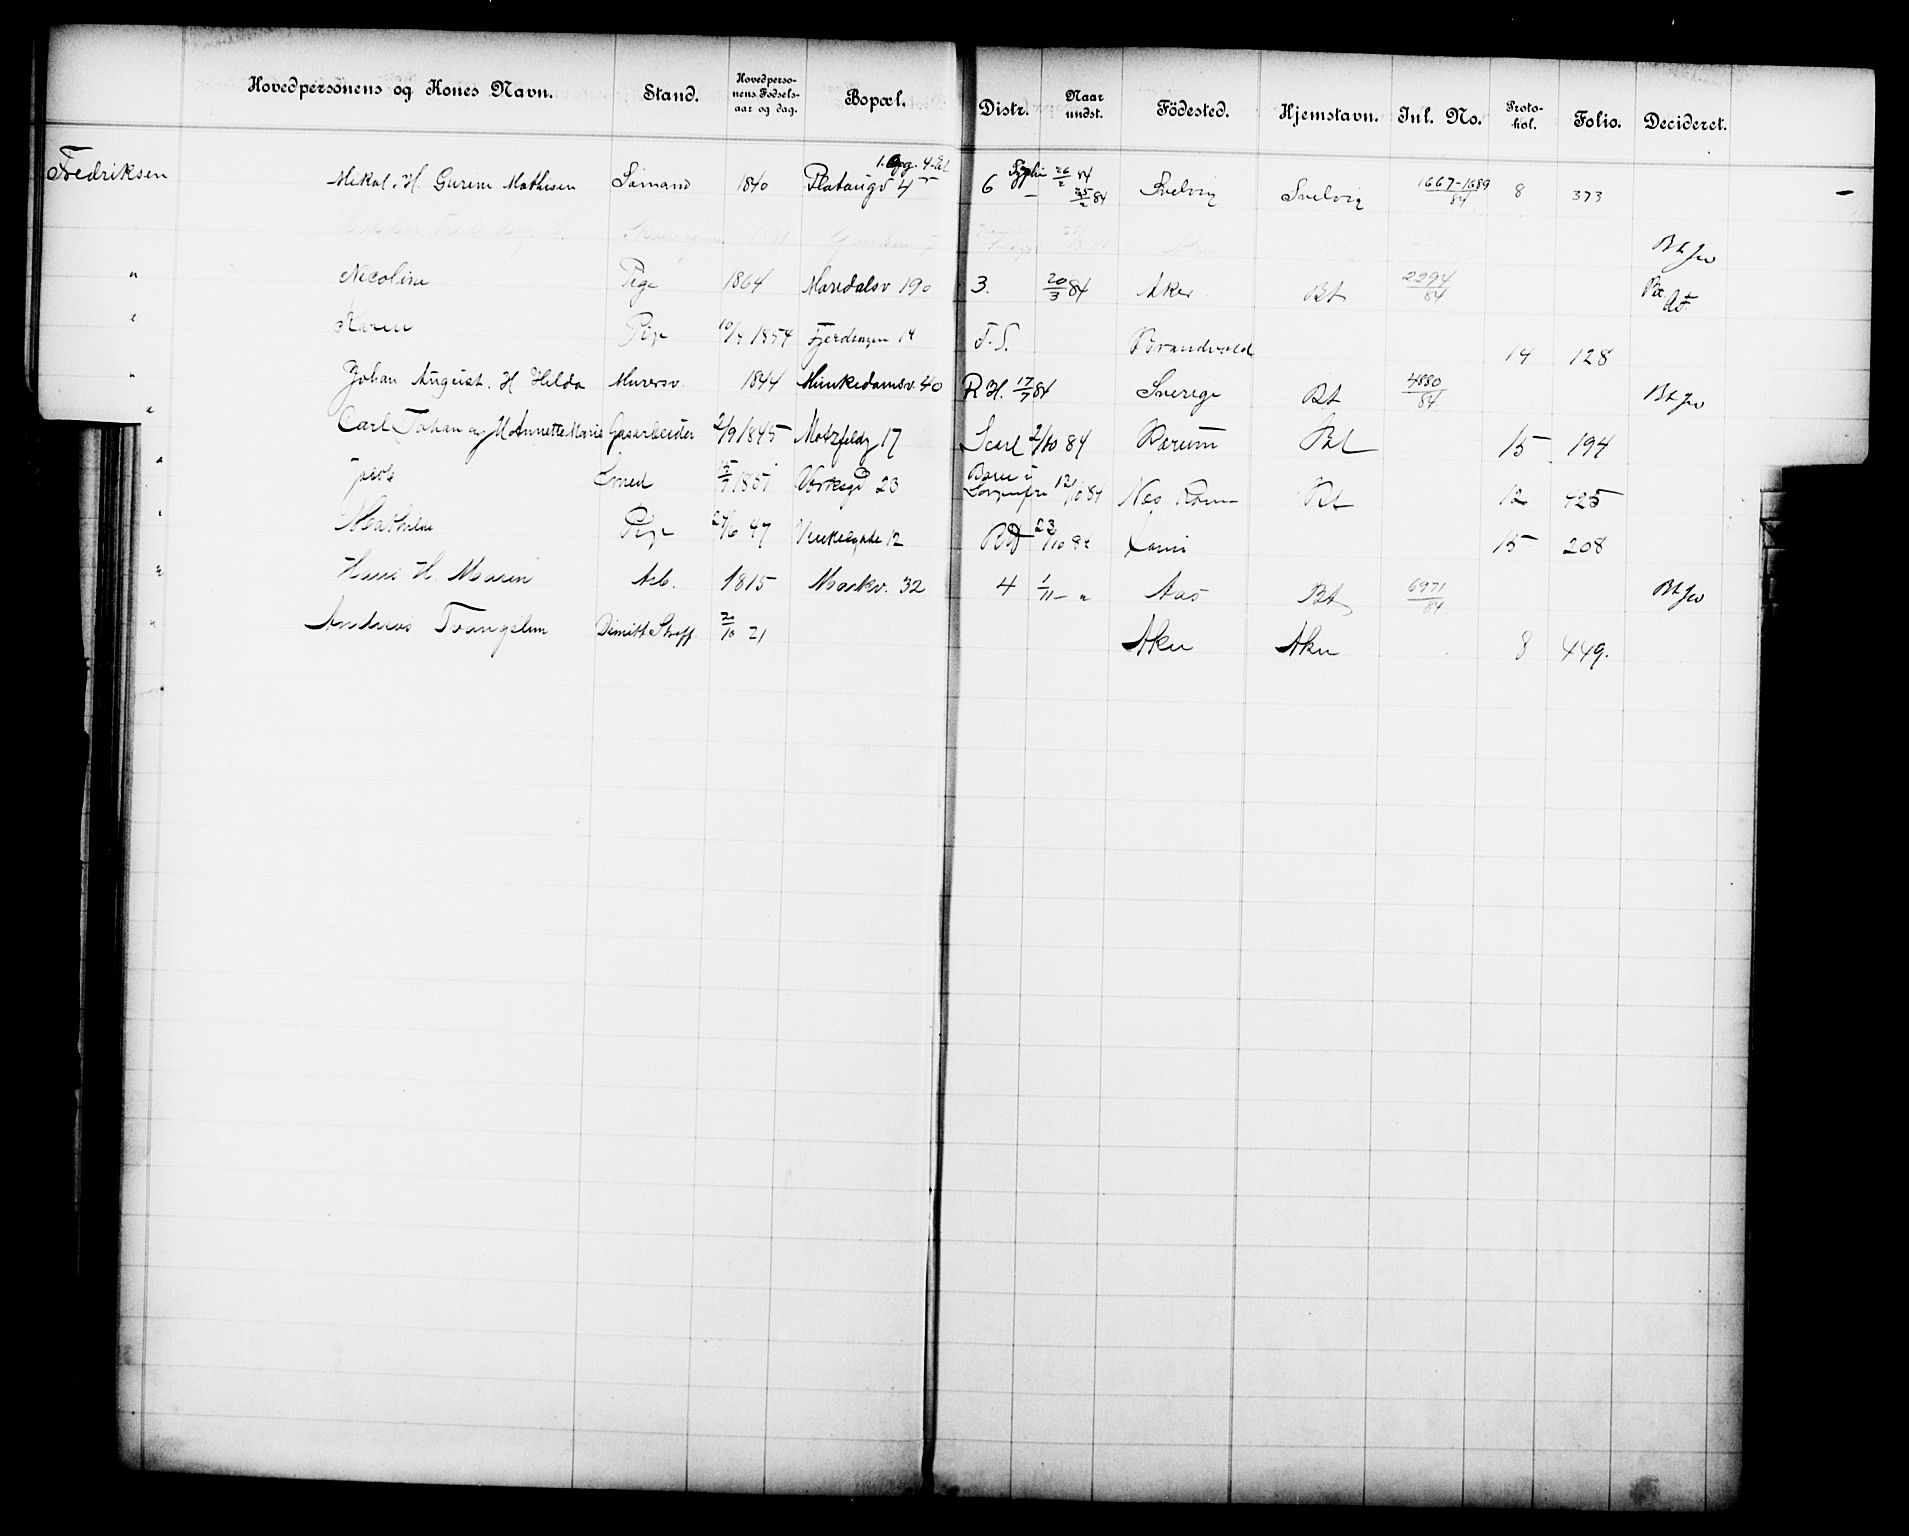 Hovedpersonens og Kones Navn. Stand. Hovedperso-nens Fødsels-aar og dag. Bopæl. Distr. Naar undst. Födested. Hjemstavn. Inl. No. Proto-kol. Folio. Decideret.
Fredriksen Mekal. H. Gurene Mathisen Sømand 1840 4 1. Opg. 4. Et 6 26/2 84 25/2 84 Svelvig Svelvig 1667-1689/84 8 373 –
1871 Bt Jw
" Nicoline Pige 1864 Maridalsv 190 3. 20/3 84 Aker Bt 2294/84 Bt.
" Karen Pige 10/4 1854 Fjerdingen 14 F. S. Brandvold 14 128
" Johan August. H Hilda Murersv. 1844 Munkedamsv. 40 R H. 17/7 84 Sverige Bt 4880/84 Bt Jw
" Carl Johan og H Annette Marie Gasarbeider 2/9 1845 Motzfeldg 17 Scarl 2/10 84 Bærum Bt 15 194
" Jacob Smed 15/7 1851 Verksgd 23 12/10 84 Nes Rom Bt 12 425
" Mathilde Pige 27/6 47 Vinkelgade 12 23/10 84 15 208
" Hans H. Maren Arb. 1815 Markv. 32 4 1/11 – " Aas Bt 6971/84 Bt Jw
" Andreas Trangslun Dimitt Straff 20/10 21 Aker Aker 8 449.